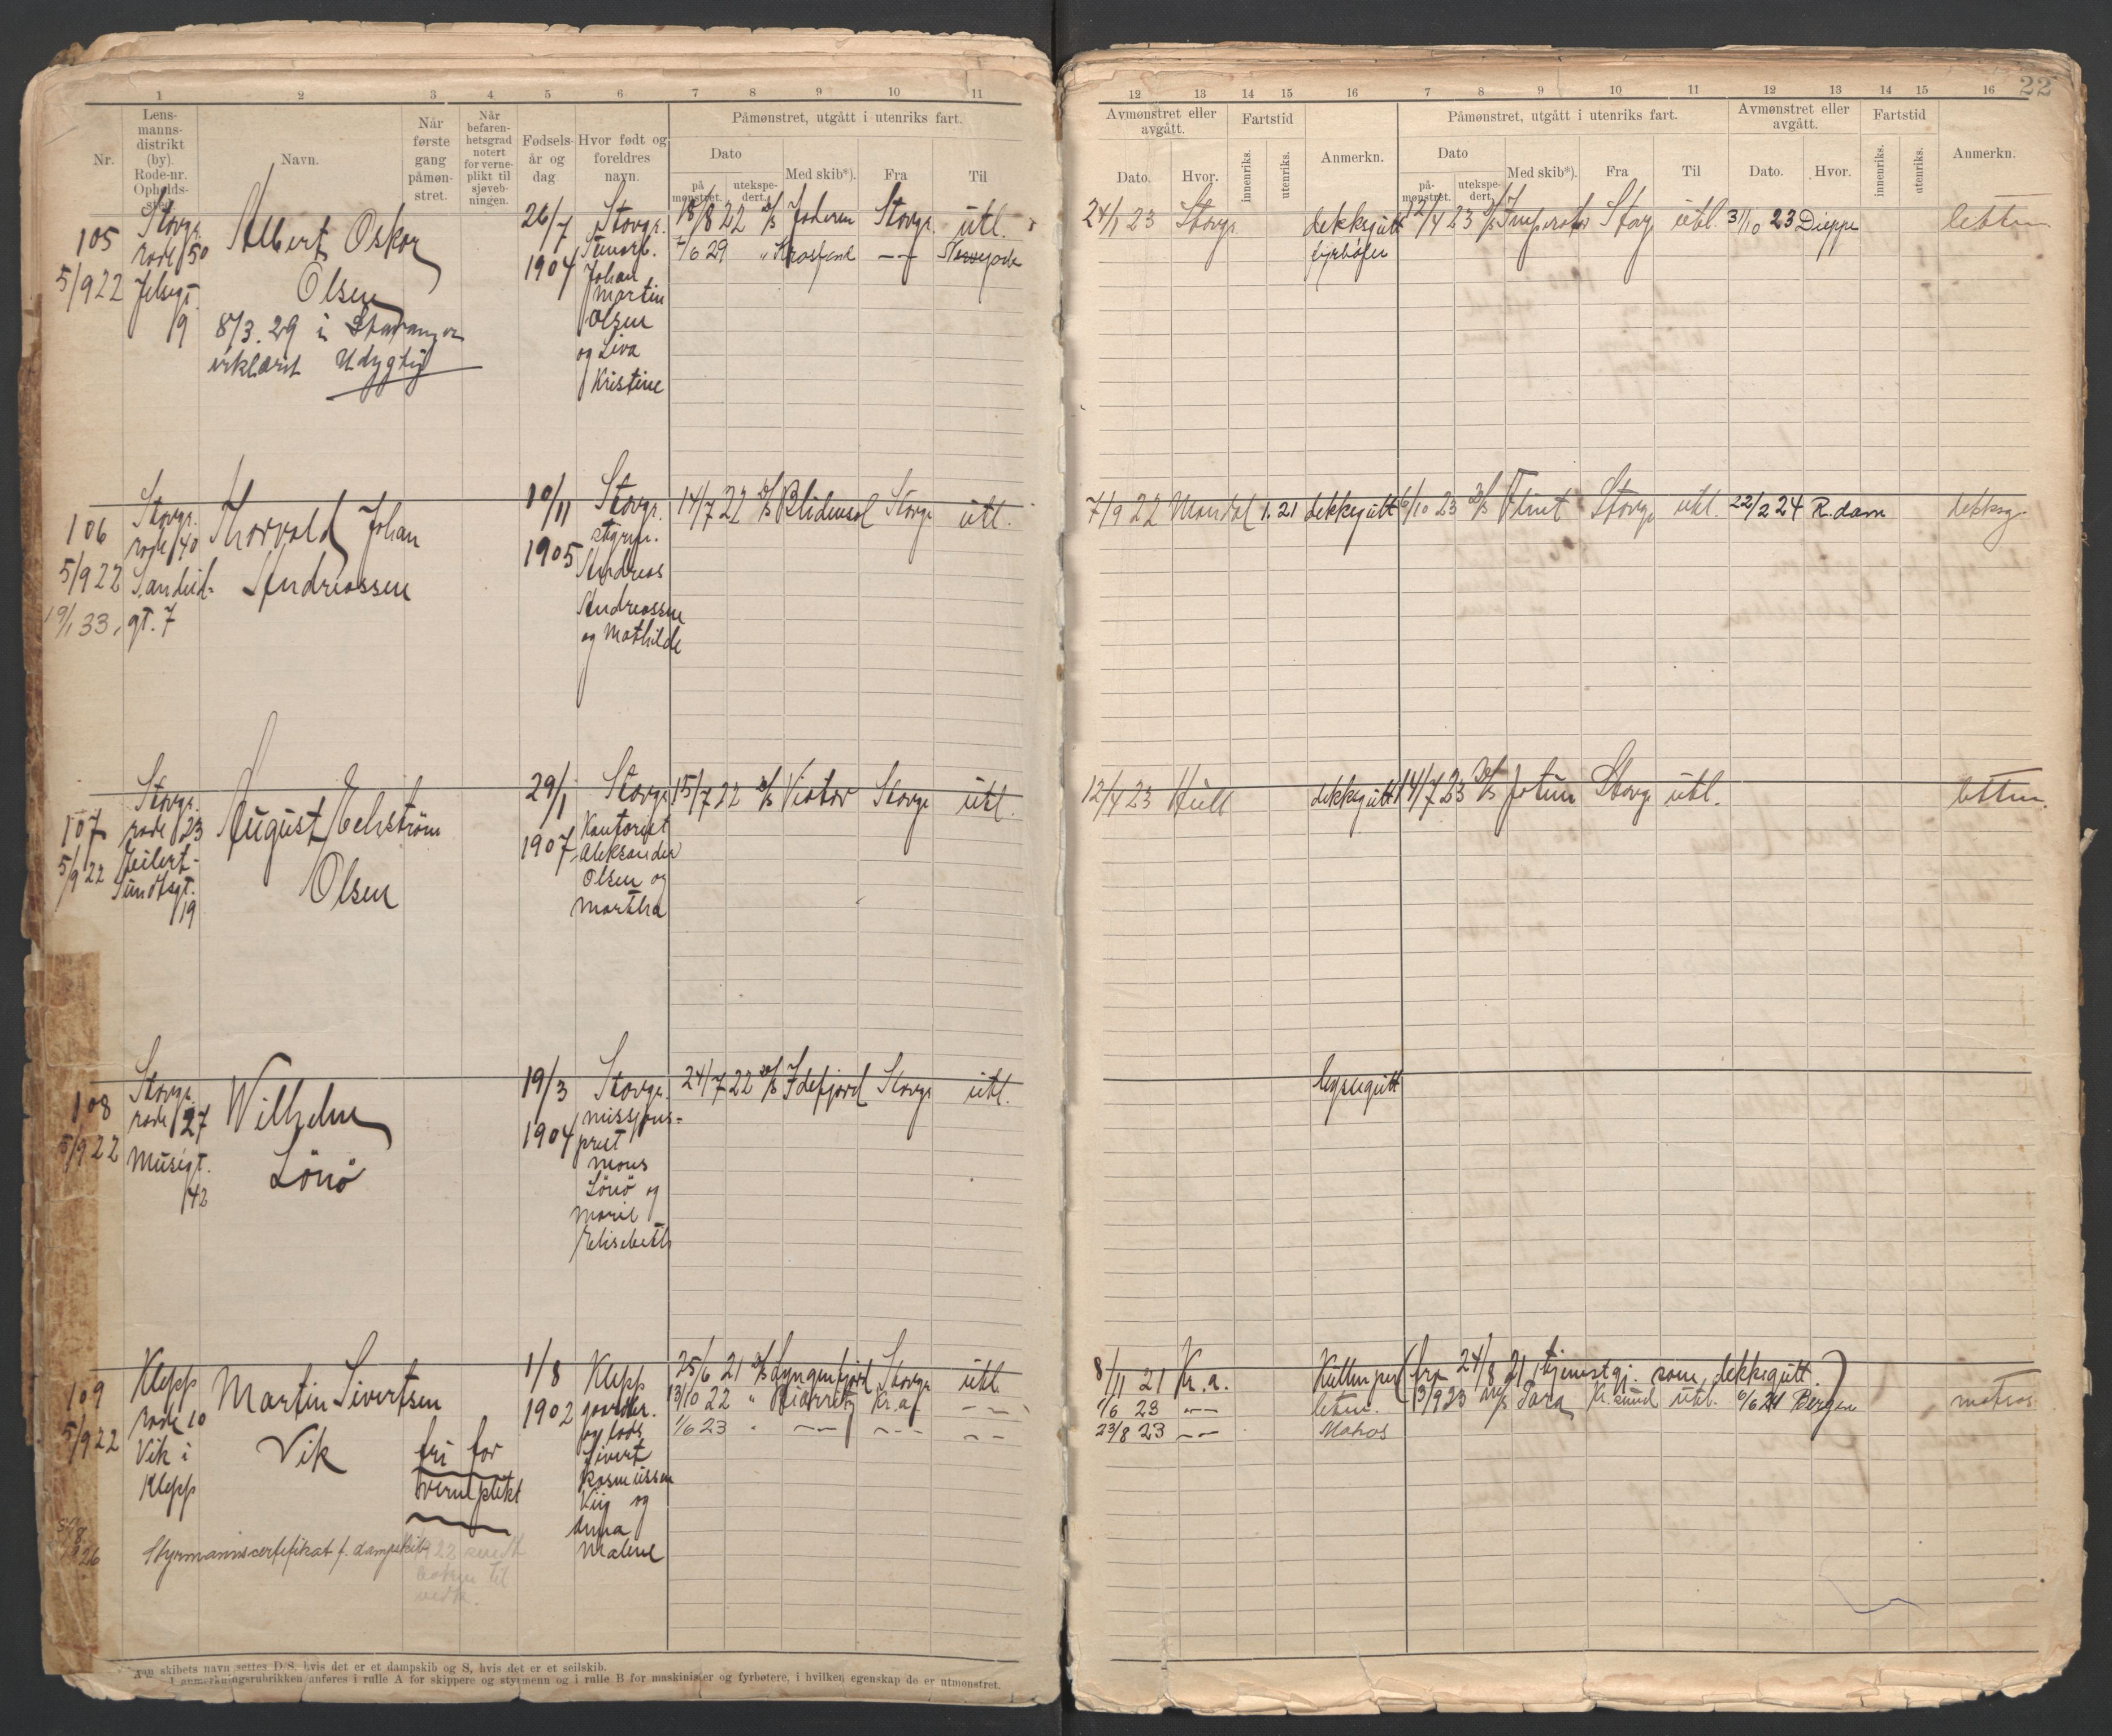 22
1 2 3 4 5 6 7 8 9 10 11
Nr.
Lens-
manns-
distrikt
(by).
Rode-nr.
Opholds-
sted.
Navn.
Når
første
gang
påmøn-
stret.
Når
befaren-
hetsgrad
notert
for verne-
plikt til
sjøveb-
ningen.
Fødsels-
år og
dag
Hvor født og
foreldres
navn.
Påmønstret, utgått i utenriks fart.
Dato
på-
mønstret.
utekspe-
dert.
Med skib*).
Fra
Til
105
5/9 22
Stavgr.
rode 50
Jelsegt.
19
Albert Oskar
Olsen
8/3. 29 i Stavanger
erklært Udygtig
26/7
1904
Stavgr.
Johan
Martin
Olsen
og Lina
Kristine
18/8 22 D/S Jaderen Stavgr. utl.
/6 29 "
106
5/9 22
19/1 33.
Stavgr.
rode 40
Sandeid-
gt. 7
Thorvald Johan
Andreassen
10/11
1905
Stavgr.
Andreas
Andreassen
og Mathilde
14/7 22 D/S Blidensol Stavgr utl.
107
5/9 22
Stavgr.
rode 23
Eilert-
Sundtsgt.
19
August Echström
Olsen
29/1
1907
Stavgr.
Kontorist
Aleksander
Olsen og
Martha
15/7 22 D/S Viator Stavgr utl.
108
5/9 22
Stavgr.
rode 27
Musegt.
42
Wilhelm
Lönö
19/3
1904
Stavgr.
missjons-
prest
Mons
Lönö og
Marie
Elisabeth
24/7 22 D/S Idefjord Stavgr utl.
109
5/9 22
Klepp
rode 10
Vik i
Klepp
Martin Sivertsen
Vik
fri for
verneplikt
1/8
1902
Klepp
gaardbr.
og lods
Sivert
Rasmussen
Viig og
Anna
Malene
25/6 21 D/S Lyngenfjord Stavgr utl.
13/10 22 " Biarritz Kr.a
1/6 23
26
Styrmannscertifikat f. dampskib
skibets navn settes D/S, hvis det er et dampskib og S, hvis det er et seilskib.
I anmerkningsrubrikken anføres i rulle A for skippere og styrmenn og i rulle B for maskinister og fyrbøtere, i hvilken egenskap de er utmønstret.
12 13 14 15 16 7 8 9 10 11 12 13 14 15 16
Avmønstret eller
avgått.
Dato.
Hvor.
Fartstid
innenriks.
utenriks.
Anmerkn.
Påmønstret, utgått i utenriks fart.
Dato
på-
mønstret.
utekspe-
dert.
Med skib*).
Fra
Til
Avmønstret eller
avgått.
Dato.
Hvor.
Fartstid
innenriks.
utenriks.
Anmerkn.
24/1 23 Stavgr. dekksgutt 12/4 23 D/S Imperator Stavg utl. 3/10 23 Dieppe lettm.
fyrböter
7/9 22 Mandal 1.21 dekksgutt 6/10 23 D/S Flint Stavgr utl. 22/2 24 R.dam dekksg.
12/4 23 Hull dekksgutt 14/7 23 D/S Jotun Stavgr utl. lettm.
byssegutt
8/11 21 Kr.a. (fra 24/8 21 tjenestgj. som dekksgutt)
1/6 23 lettm. 13/9 23 M/S Tara Kr.sund utl. 6/6 24 Bergen matros
23/8 23 Matros